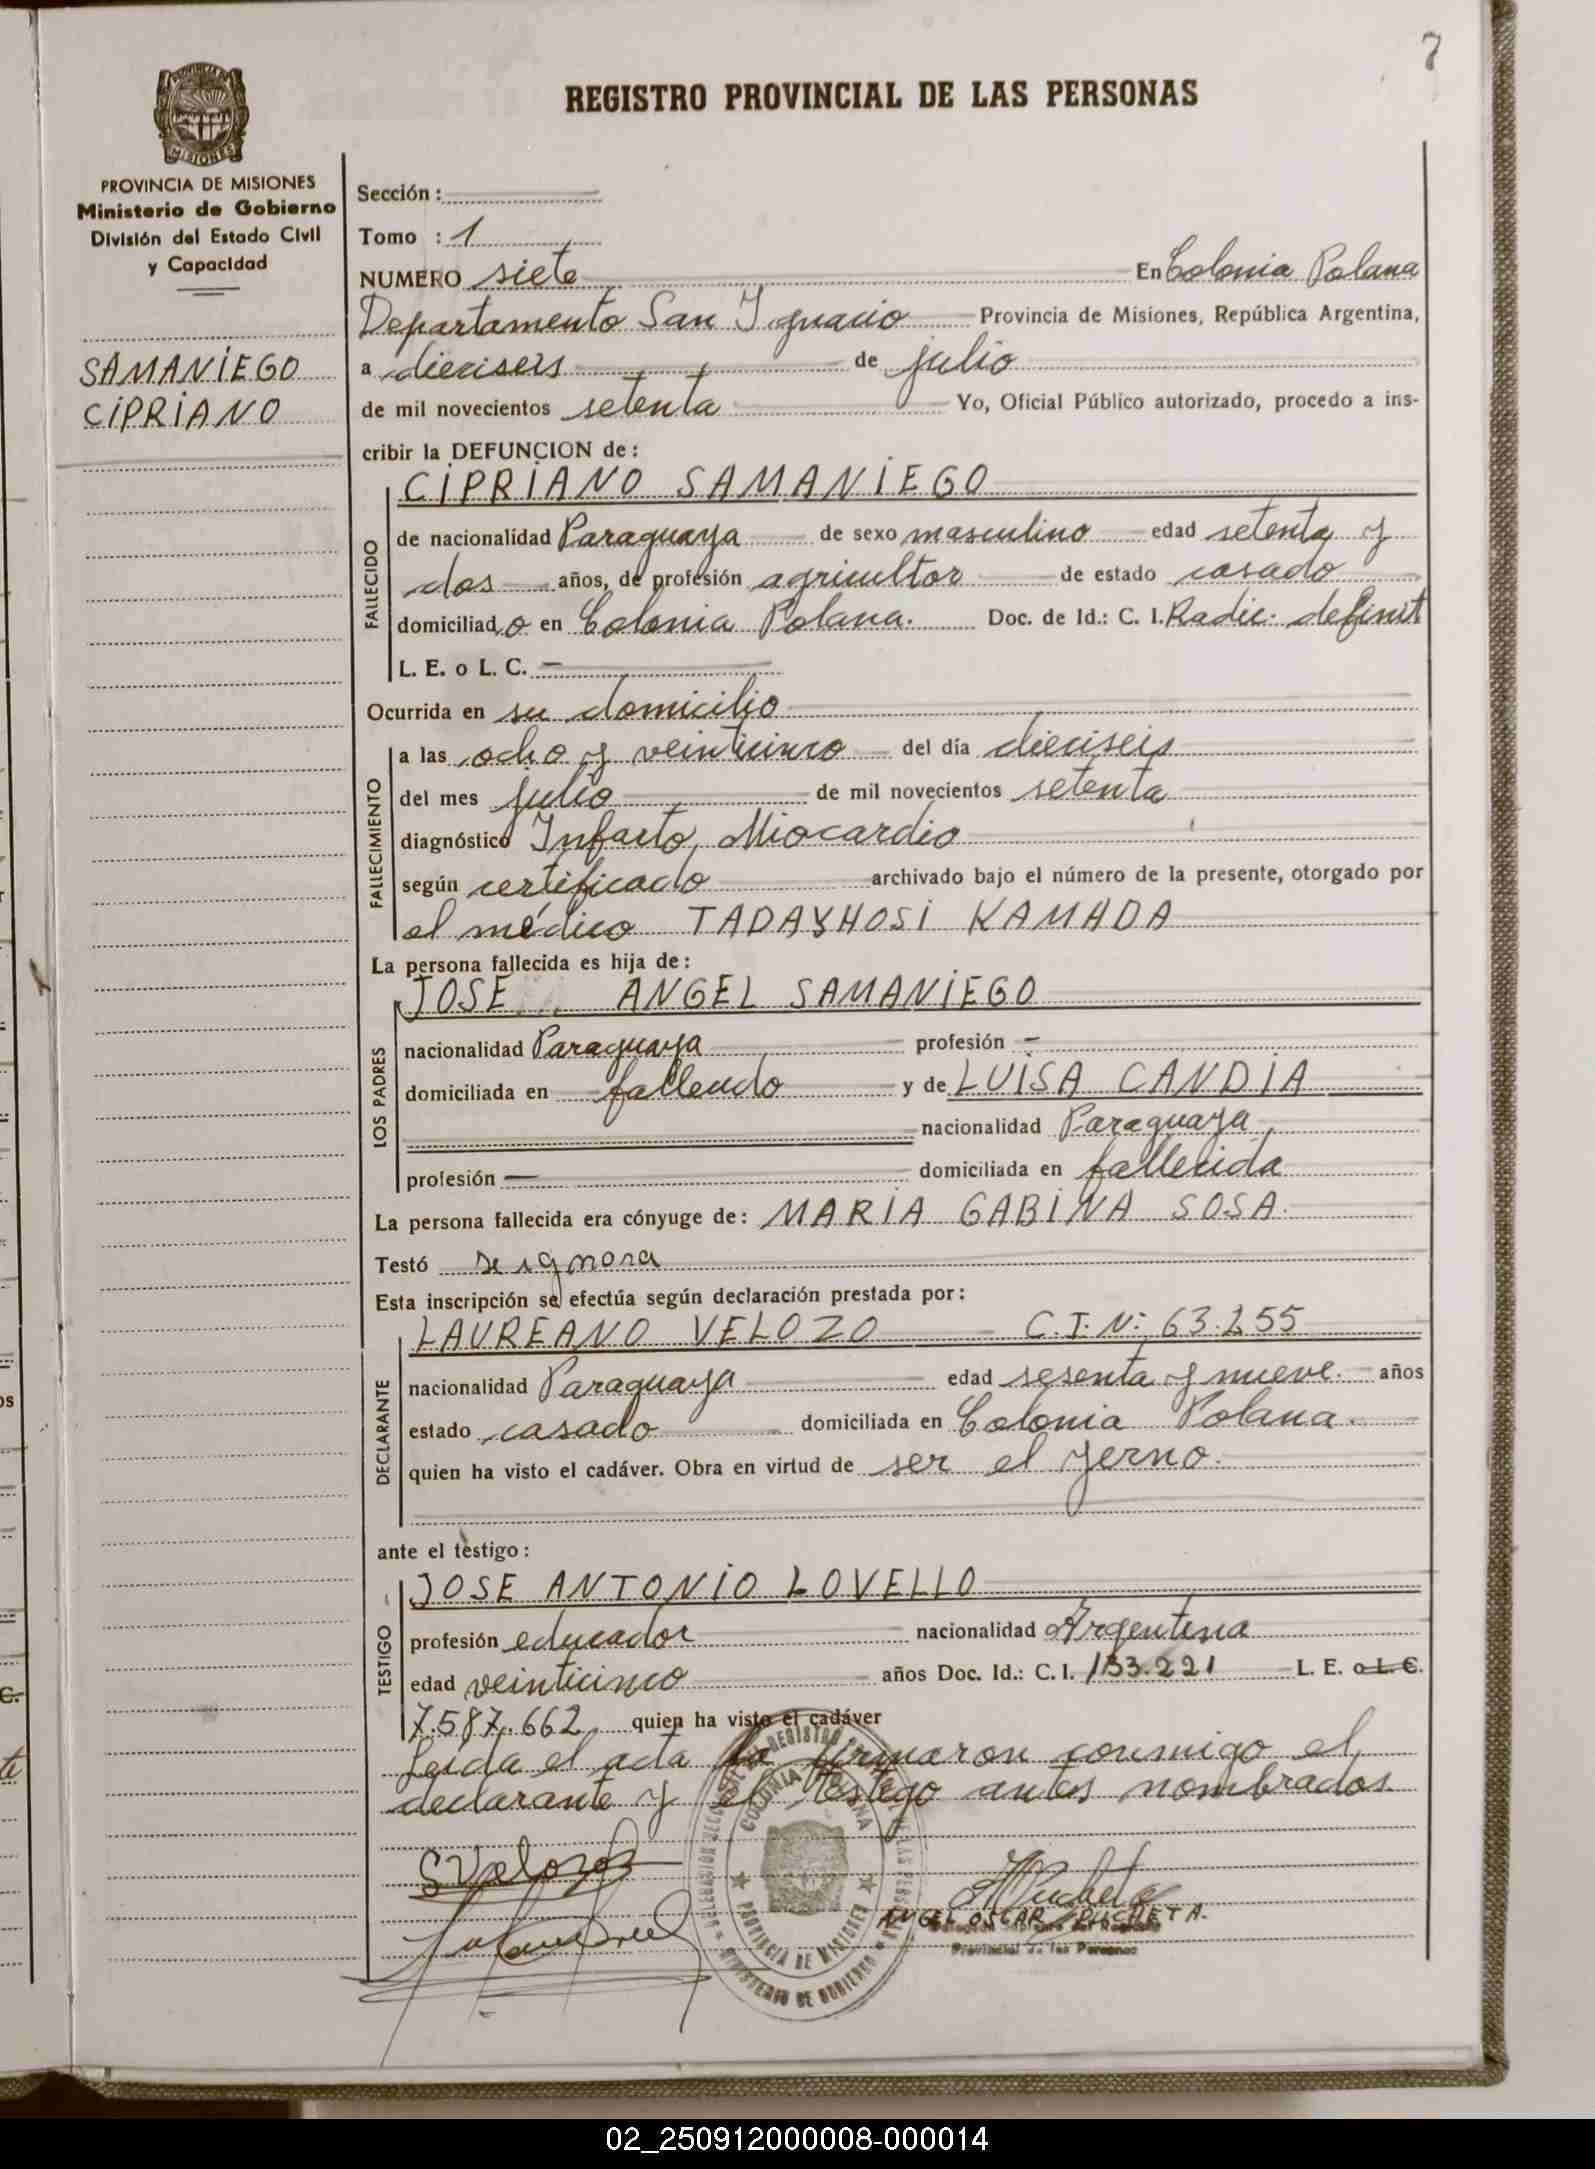 7
REGISTRO PROVINCIAL DE LAS PERSONAS
PROVINCIA DE MISIONES
Ministerio de Gobierno
División del Estado Civil
y Capacidad
SAMANIEGO
CIPRIANO
Sección :
Tomo : 1
NUMERO siete En Colonia Polana
Departamento San Ignacio Provincia de Misiones, República Argentina,
a dieciseis de julio
de mil novecientos setenta Yo, Oficial Público autorizado, procedo a ins-
cribir la DEFUNCION de :
CIPRIANO SAMANIEGO
FALLECIDO
de nacionalidad Paraguaya de sexo masculino edad setenta y
dos años, de profesión agricultor de estado casado
domiciliado en Colonia Polana. Doc. de Id.: C. I. Radic. definit
L. E. o L. C. —
Ocurrida en su domicilio
FALLECIMIENTO
a las ocho y veinticinco del día dieciseis
del mes julio de mil novecientos setenta
diagnóstico Infarto, Miocardio
según certificado archivado bajo el número de la presente, otorgado por
el médico TADAYHOSI KAMADA
La persona fallecida es hija de :
LOS PADRES
JOSE ANGEL SAMANIEGO
nacionalidad Paraguaya profesión —
domiciliada en fallecido y de LUISA CANDIA
nacionalidad Paraguaya,
profesión — domiciliada en fallecida
La persona fallecida era cónyuge de : MARIA GABINA SOSA.
Testó se ignora
Esta inscripción se efectúa según declaración prestada por :
DECLARANTE
LAUREANO VELOZO C.I. N: 63.255
nacionalidad Paraguaya edad sesenta y nueve. años
estado casado domiciliada en Colonia Polana.
quien ha visto el cadáver. Obra en virtud de ser el yerno.
ante el testigo :
TESTIGO
JOSE ANTONIO LOVELLO
profesión educador nacionalidad Argentina
edad veinticinco años Doc. Id.: C. I. 133.221 L. E. o L. C.
7.587.662 quien ha visto el cadáver
Leida el acta la firmaron conmigo el
declarante y el testigo antes nombrados.
COLONIA POLANA
PROVINCIA DE MISIONES
MINISTERIO DE GOBIERNO
ANGEL OSCAR PUCHETA.
Provincial de las Personas
02_250912000008-000014